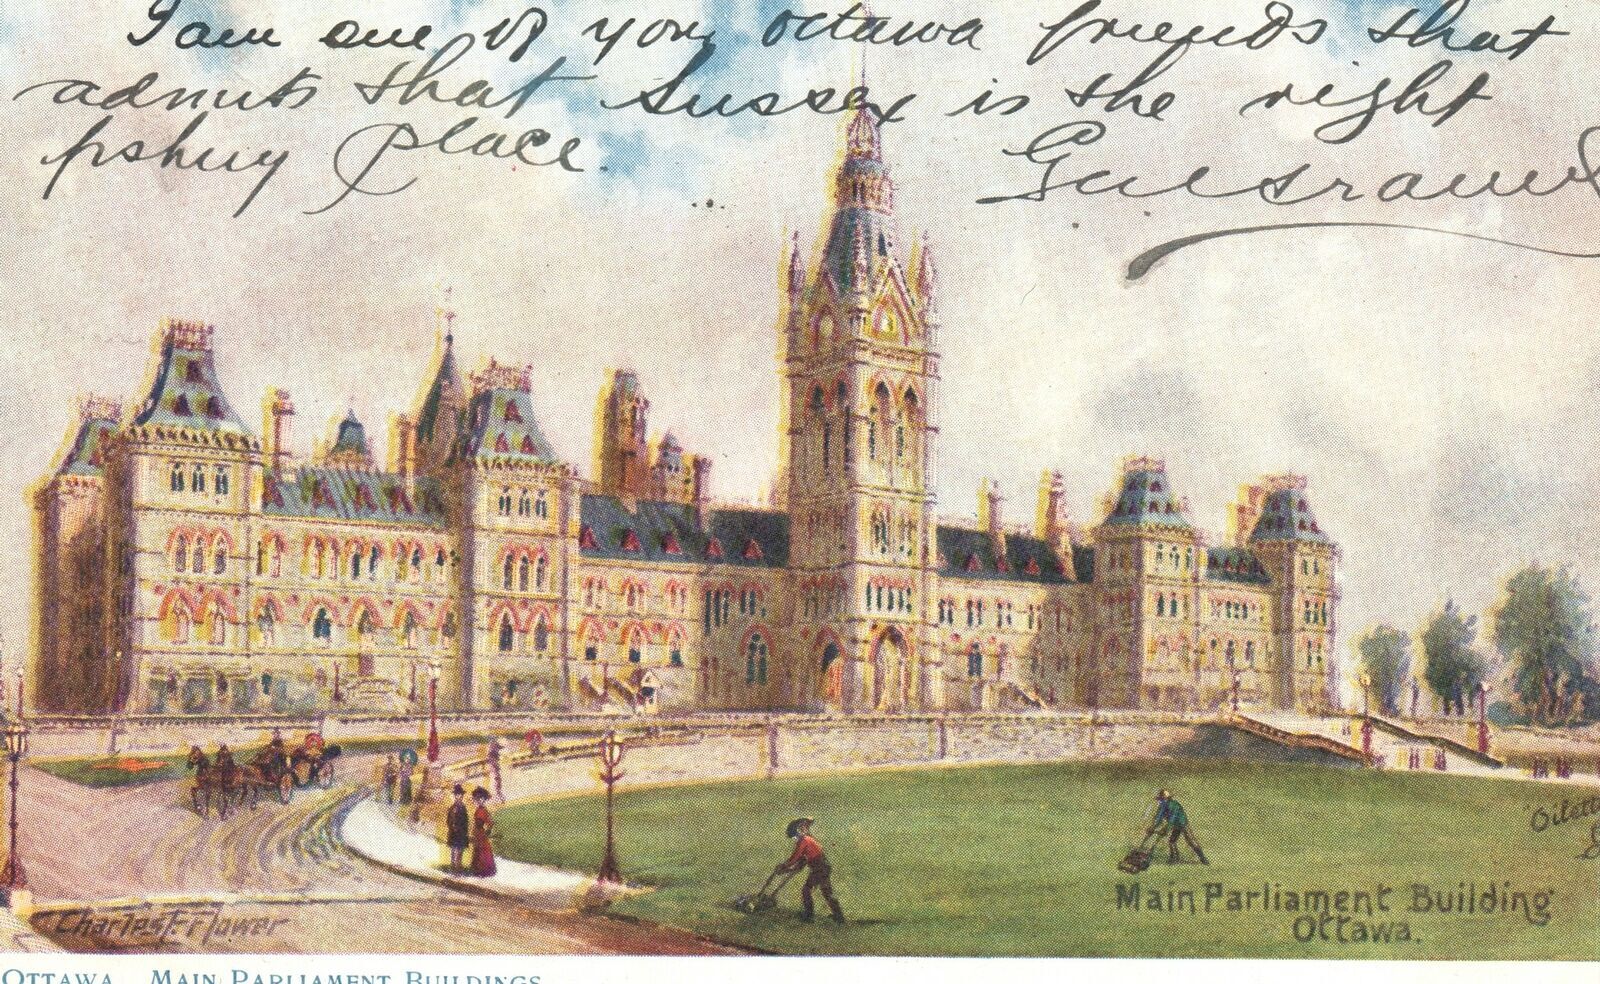 I am one of your Ottawa friends that
admits that Sussex is the right
fishing place.
'Oilette
Main Parliament Building
Ottawa.
Charles F. Flower
OTTAWA. MAIN PARLIAMENT BUILDINGS